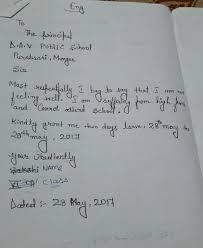 Eng
To
The principal
D.A.V Public School
Purabsari, Munger
Sir
Most respectfully I beg to say that I am not
feeling well. I am suffering from high fever
and cannot attend school.
Kindly grant me two days leave, 28th may to
29th may, 2017
Your Obediently
Sakshi NAME
VI 'A' CLASS
Dated :- 28 May, 2017